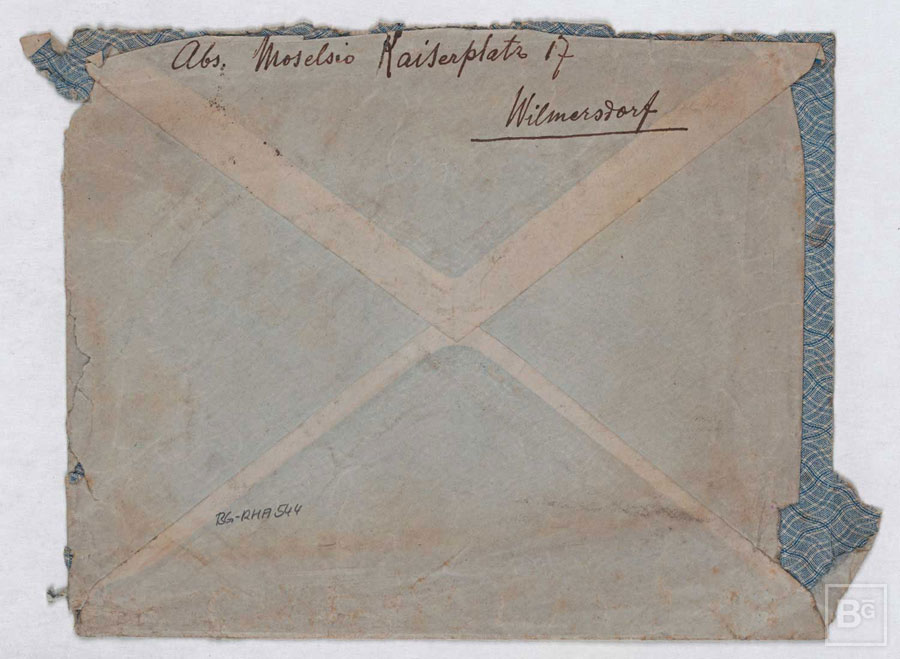 Abs. Moselsio Kaiserplatz 17
Wilmersdorf
BG-RHA544
BG